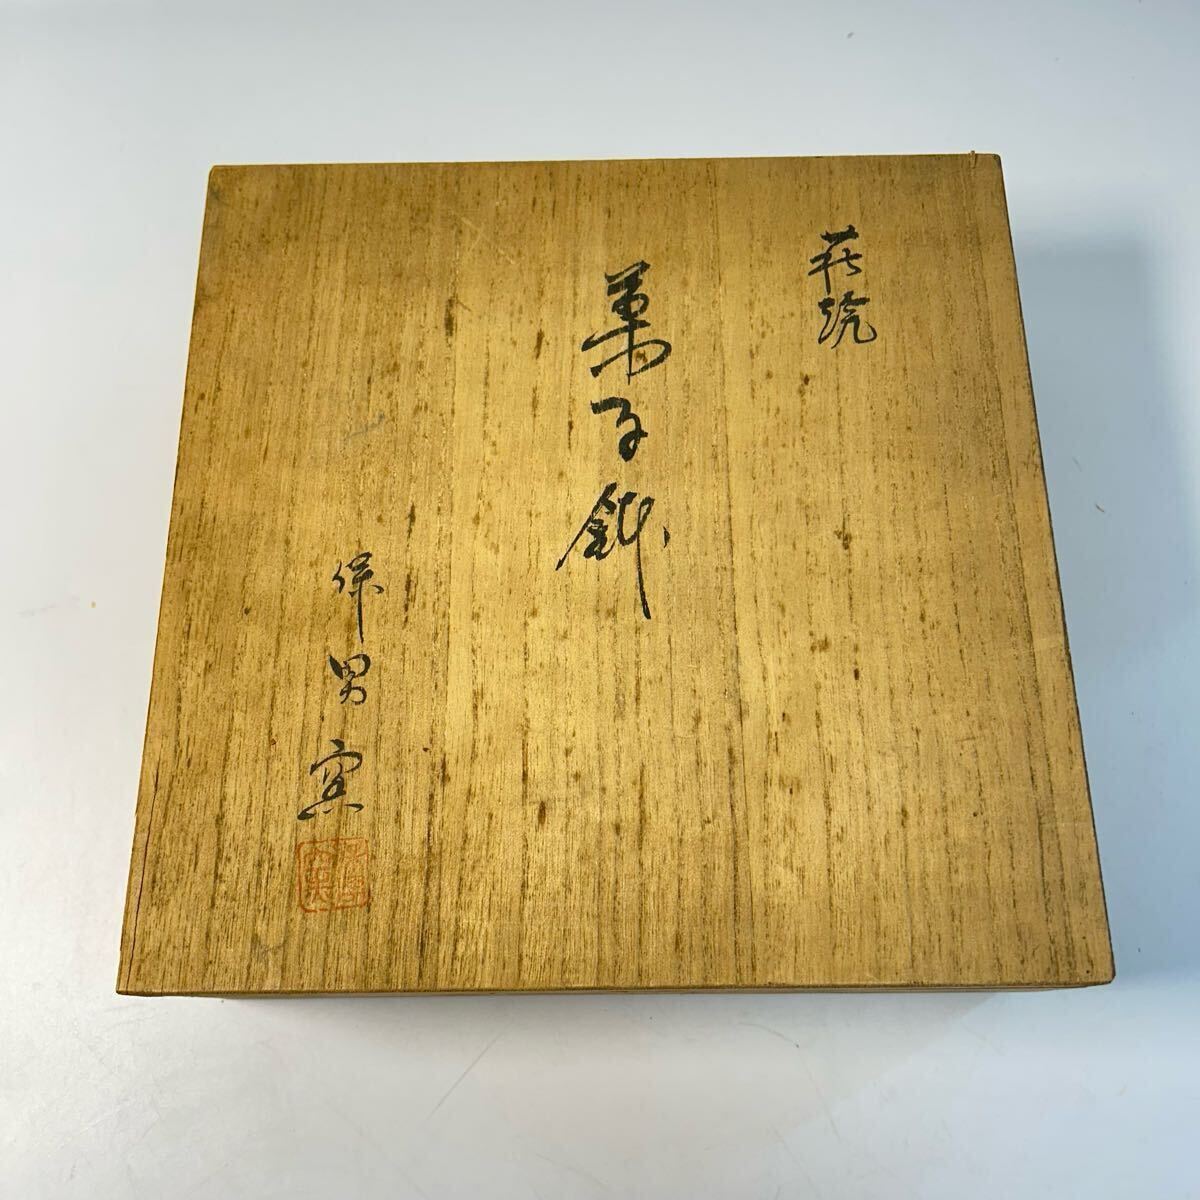 萩焼
菓子鉢
保男窯